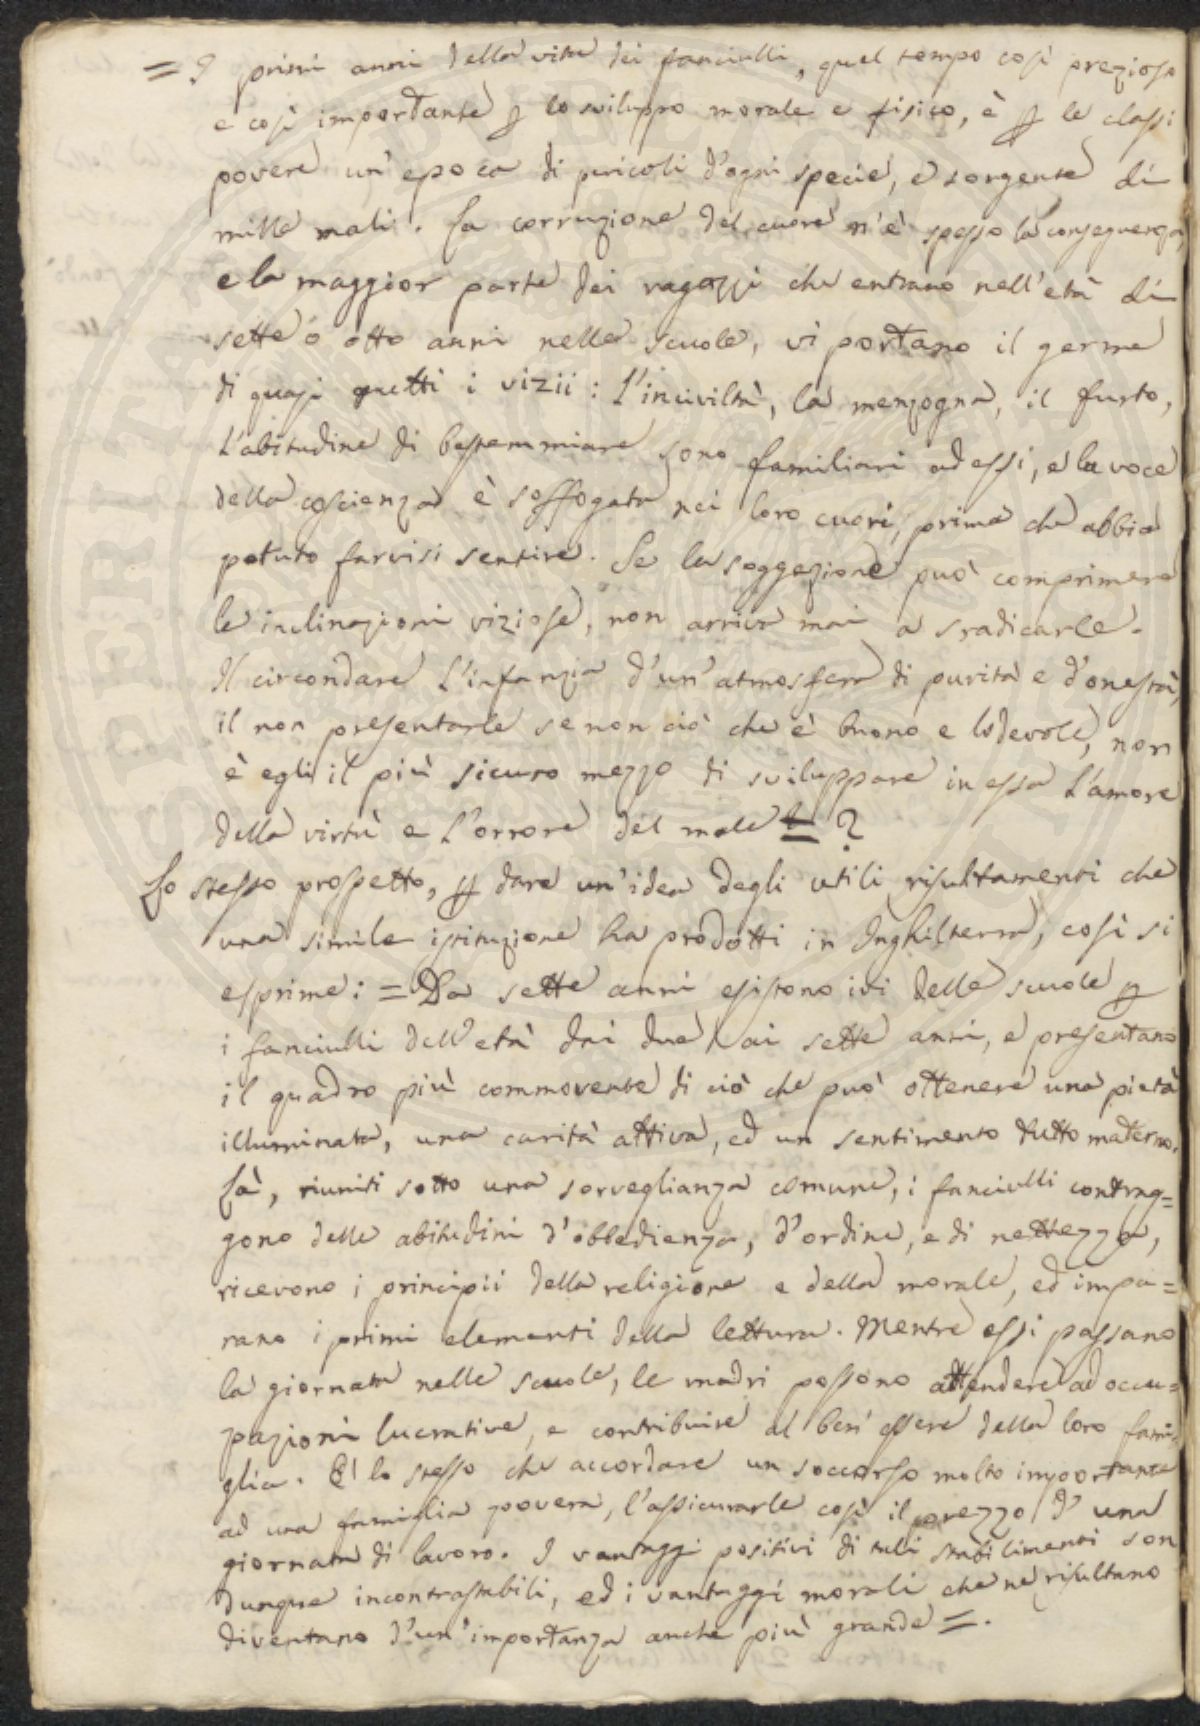 = I primi anni della vita dei fanciulli, quel tempo così prezioso
e così importante p lo sviluppo morale e fisico, è p le classi
povere un'epoca di pericoli d'ogni specie, e sorgente di
mille mali. La corruzione del cuore n'è spesso la conseguenza,
e la maggior parte dei ragazzi che entrano nell'età di
sette o otto anni nelle scuole, vi portano il germe
di quasi tutti i vizii: L'inciviltà, la menzogna, il furto,
L'abitudine di bestemmiare sono familiari ad essi, e la voce
della coscienza è soffogata nei loro cuori, prima che abbia
potuto farvisi sentire. Se la soggezione può comprimere
le inclinazioni viziose, non arriva mai a sradicarle.
Il circondare L'infanzia d'un'atmosfera di purità e d'onestà,
il non presentarle se non ciò che è buono e lodevole, non
è egli il più sicuro mezzo di sviluppare in essa L'amore
della virtù e L'orrore del male = ?
Lo stesso prospetto, p dare un'idea degli utili risultamenti che
una simile istituzione ha prodotti in Inghilterra, così si
esprime: = Da sette anni esistono ivi delle scuole p
i fanciulli dell'età dai due ai sette anni, e presentano
il quadro più commovente di ciò che può ottenere una pietà
illuminata, una carità attiva, ed un sentimento tutto materno.
Là, riuniti sotto una sorveglianza comune, i fanciulli contrag=
gono delle abitudini d'obbedienza, d'ordine, e di nettezza,
ricevono i principii della religione e della morale, ed impa=
rano i primi elementi della lettura. Mentre essi passano
la giornata nelle scuole, le madri possono attendere ad occu=
pazioni lucrative, e contribuire al ben essere della loro fami=
glia. È lo stesso che accordare un soccorso molto importante
ad una famiglia povera, l'assicurarle così il prezzo d'una
giornata di lavoro. I vantaggi positivi di tali stabilimenti son
dunque incontrastabili, ed i vantaggi morali che ne risultano
diventano d'un'importanza anche più grande =.